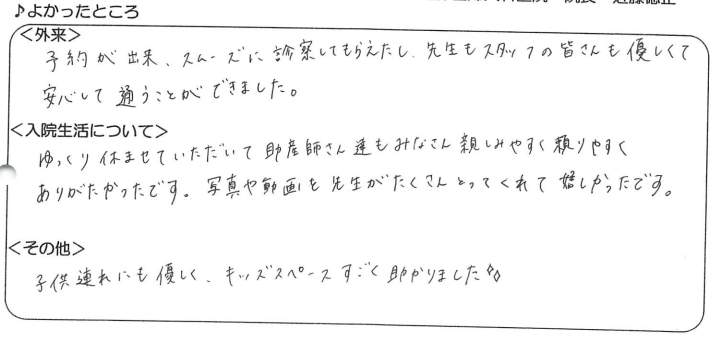 ♪よかったところ
＜外来＞
予約が出来、スムーズに診察してもらえたし、先生もスタッフの皆さんも優しくて
安心して通うことができました。
＜入院生活について＞
ゆっくり休ませていただいて助産師さん達もみなさん親しみやすく頼りやすく
ありがたかったです。写真や動画も先生がたくさんとってくれて嬉しかったです。
＜その他＞
子供連れにも優しく、キッズスペースすごく助かりました